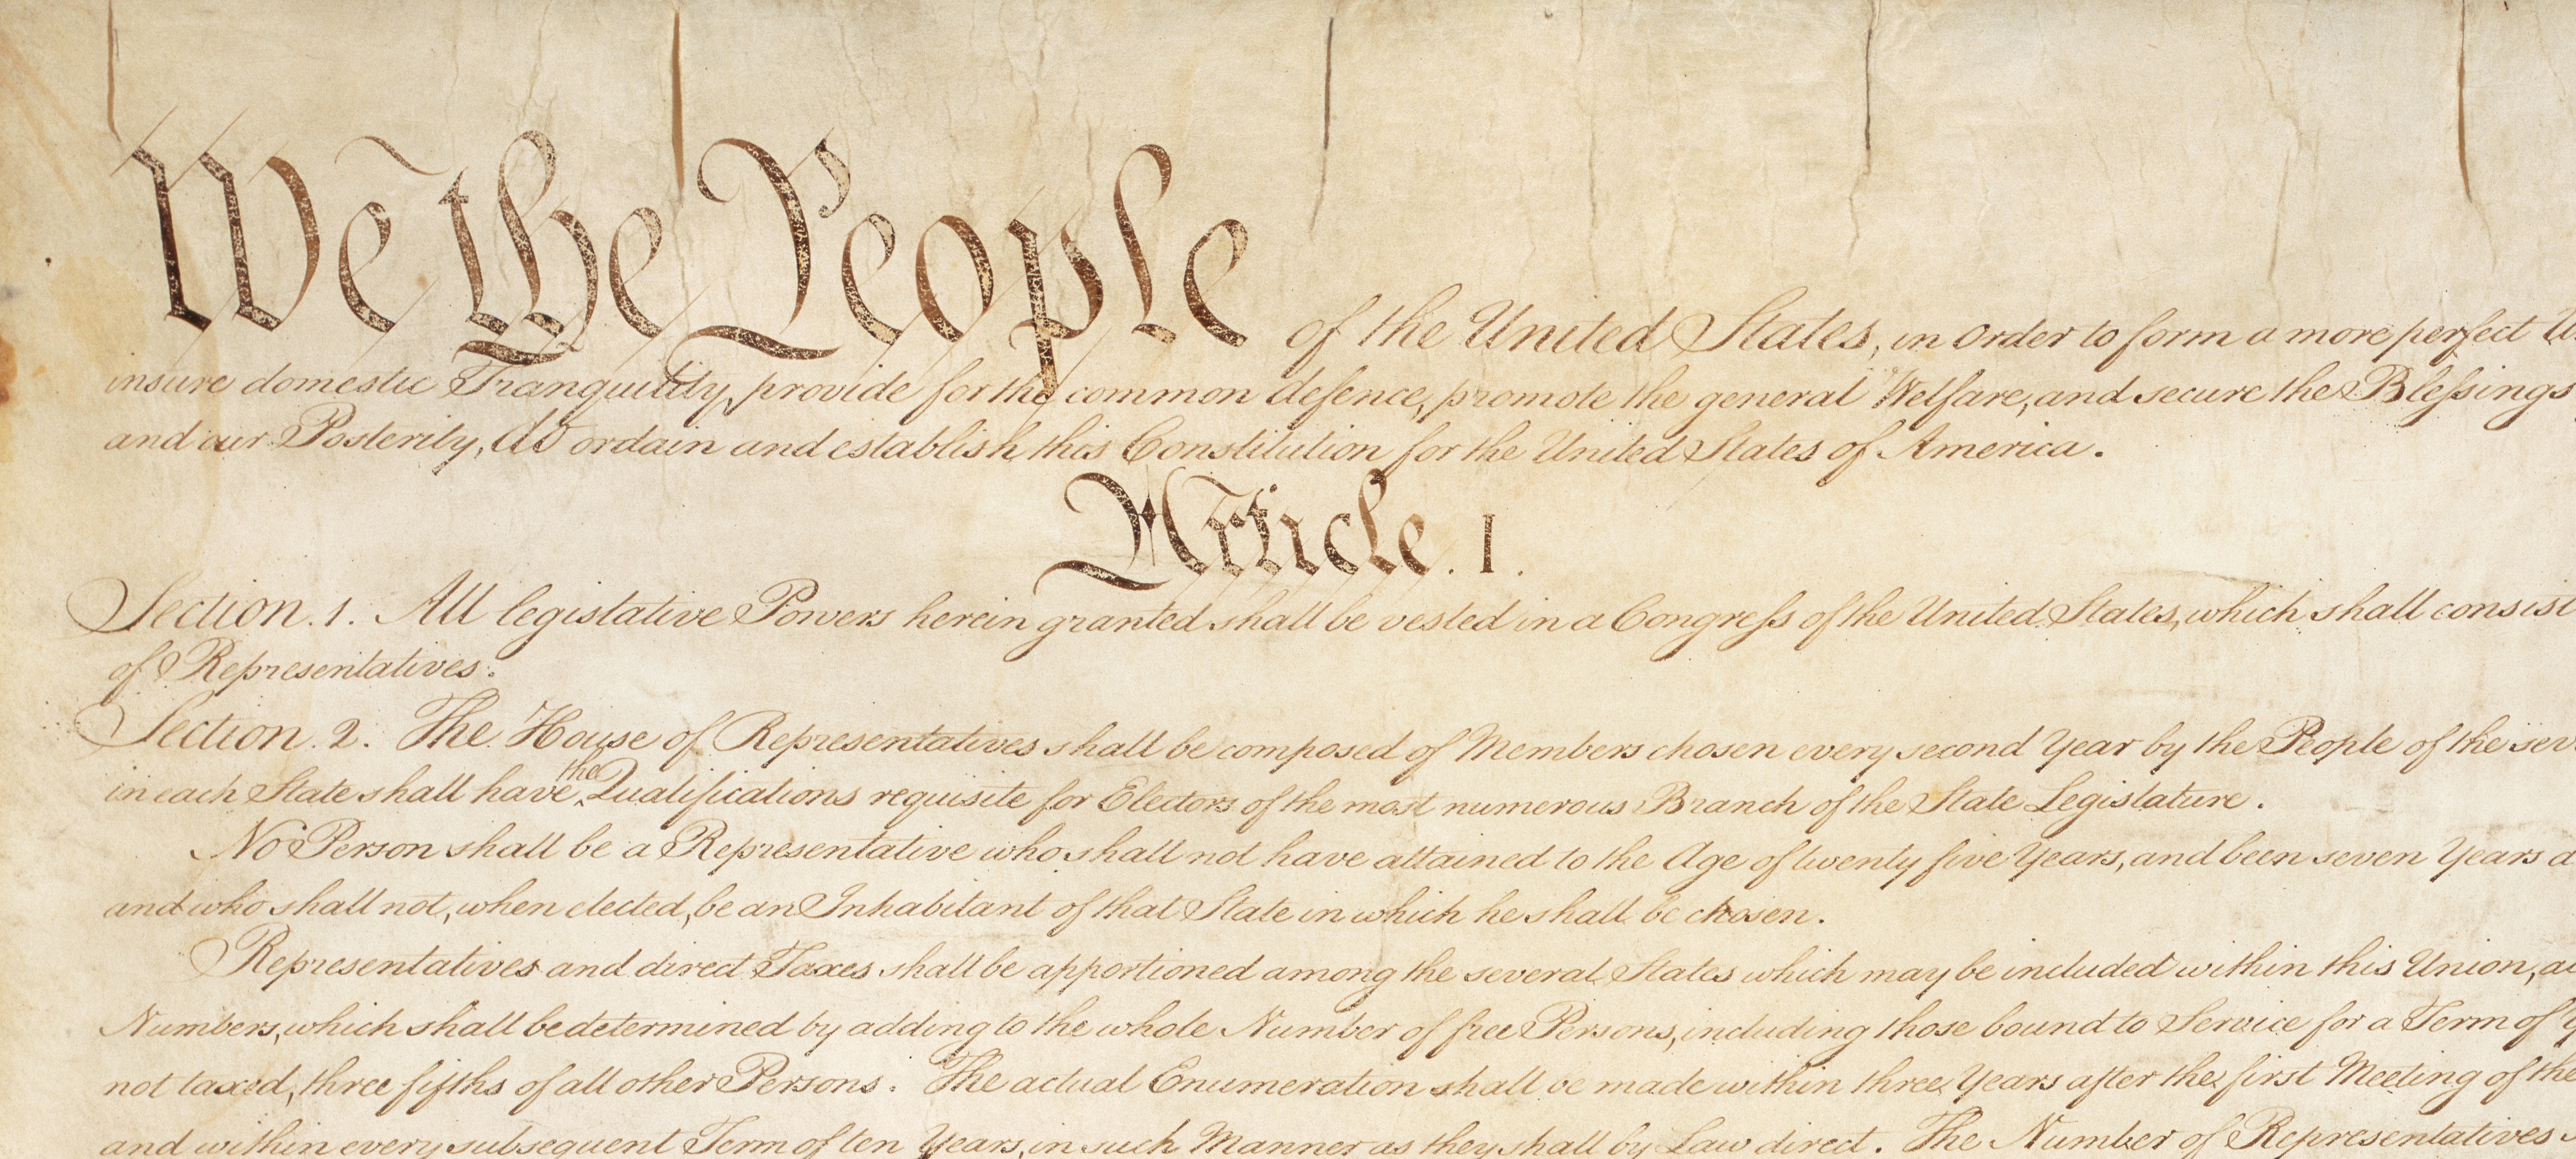 We the People of the United States, in Order to form a more perfect
insure domestic Tranquility, provide for the common defence, promote the general Welfare, and secure the Blessings
and our Posterity, do ordain and establish this Constitution for the United States of America.
Article. I.
Section. 1. All legislative Powers herein granted shall be vested in a Congress of the United States, which shall consist
of Representatives.
Section. 2. The House of Representatives shall be composed of Members chosen every second Year by the People of the
in each State shall have the Qualifications requisite for Electors of the most numerous Branch of the State Legislature.
No Person shall be a Representative who shall not have attained to the Age of twenty five Years, and been seven Years a
and who shall not, when elected, be an Inhabitant of that State in which he shall be chosen.
Representatives and direct Taxes shall be apportioned among the several States which may be included within this Union,
Numbers, which shall be determined by adding to the whole Number of free Persons, including those bound to Service for a Term of
not taxed, three fifths of all other Persons. The actual Enumeration shall be made within three Years after the first Meeting of the
and within every subsequent Term of ten Years, in such Manner as they shall by Law direct. The Number of Representatives